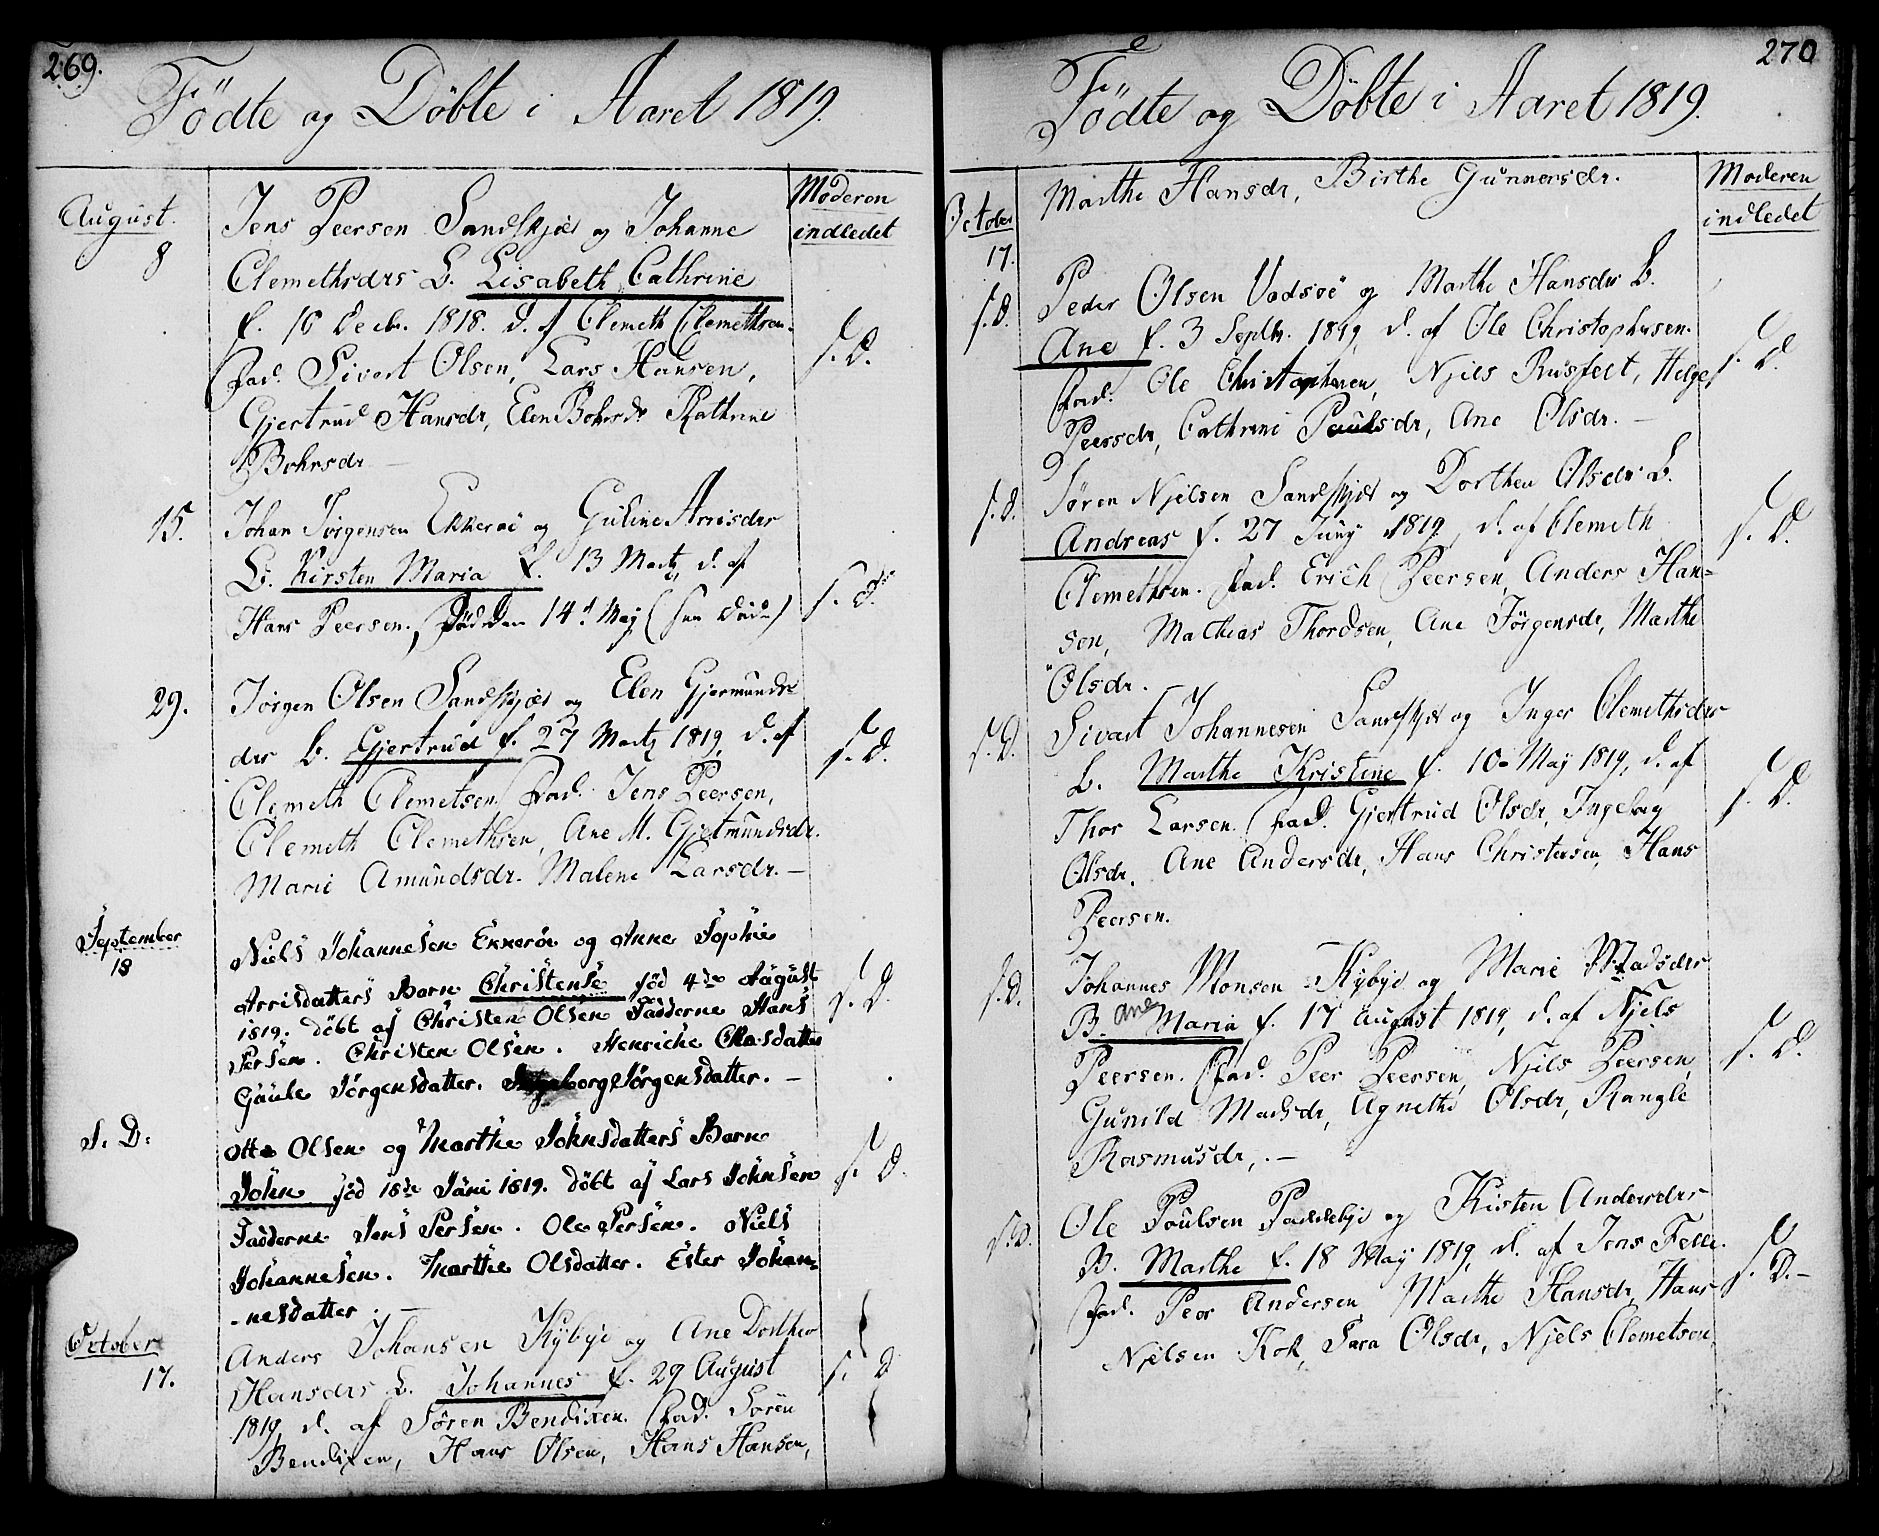 269.
Födte og Döbte i Aaret 1819.
Moderen
indledet
August.
8
Jens Peersen Sandskjær og Johanne
Clemethsdrs B. Lisabeth Cathrine
f. 10 Decbr. 1818. d. af Clemeth Clemethsen.
Fad. Sivert Olsen, Lars Hansen,
Gjertrud Hansdr, Elen Bohrsdr Kathrine
Bohrsdr —
s. D.
15.
Johan Jörgensen Ekkeröe og Guline Arrisdrs
B. Kirsten Maria f. 13 Martz, d. af
Hans Peersen.
14d May
s. D.
29.
Jörgen Olsen Sandskjær og Elen Gjermunds
drs B. Gjertrud f. 27 Martz 1819, d. af
Clemeth Clemetsen Fad. Jens Peersen,
Clemeth Clemethsen, Ane M. Gjetmundsdr.
Marie Amundsdr. Malene Larsdr. —
s. D.
September
18
Niels Johannesen Ekkeröe og Anne Sophie
Arrisdatters Barn Christense föd 4de August
1819. döbt af Christen Olsen Fadderne Hans
Persen. Christen Olsen. Henriche Olasdatter
Gaule Jörgensdatter. Ingeborg Jörgensdatter. —
s. D.
S. D.
Otte Olsen og Marthe Johnsdatters Barn
John föd 18de Juni 1819. döbt af Lars Johnsen
Fadderne Jens Persen. Ole Persen. Niels
Johannesen. Marthe Olsdatter. Ester Johan-
-nesdatter. —
s. D.
October
17.
Anders Johansen Kybye og Ane Dorthea
Hansdrs B. Johannes f. 29 August
1819, d. af Sören Bendixen. Fad. Sören
Bendixen, Hans Olsen, Hans Hansen,
s. D
270
Födte og Döbte i Aaret 1819.
Moderen
indledet
October
17.
Marthe Hansdr, Birthe Gunnersdr.
s. D.
Peder Olsen Vadsöe og Marthe Hansdrs B.
Ane f. 3 Septbr. 1819, d. af Ole Christophersen.
Fad. Ole Christophersen, Njels Rusfelt, Helge
Peersdr, Cathrine Paulsdr, Ane Olsdr. —
s. D.
s. D.
Sören Njelsen Sandskjær og Dorthea Olsdrs B.
Andreas f. 27 Juny 1819, d. af Clemeth
Clemethsen. Fad. Erich Peersen, Anders Han-
sen, Mathias Thordsen, Ane Jörgensdr, Marthe
Olsdr.
s. D.
s. D.
Sivert Johannesen Sandskjær og Inger Clemethsdrs
B. Marthe Kristine f. 10 May 1819, d. af
Thor Larsen. Fad. Gjertrud Olsdr, Ingeborg
Olsdr. Ane Andersdr, Hans Christensen, Hans
Peersen.
s. D.
s. D.
Johannes Monsen Kybye og Marie Madsdrs
B. Ane Maria f. 17 August 1819, d. af Njels
Peersen. Fad. Peer Peersen, Njels Peersen,
Gunild Madsdr, Agnethe Olsdr, Rangle
Rasmusdr, . —
s. D.
s. D.
Ole Poulsen Paddebye og Kisten Andersdrs
B. Marthe f. 18 May 1819, d. af Jens Felle.
Fad. Peer Andersen, Marthe Hansdr, Hans
Njelsen Kok, Sara Olsdr, Njels Clemetsen,
s. D. —